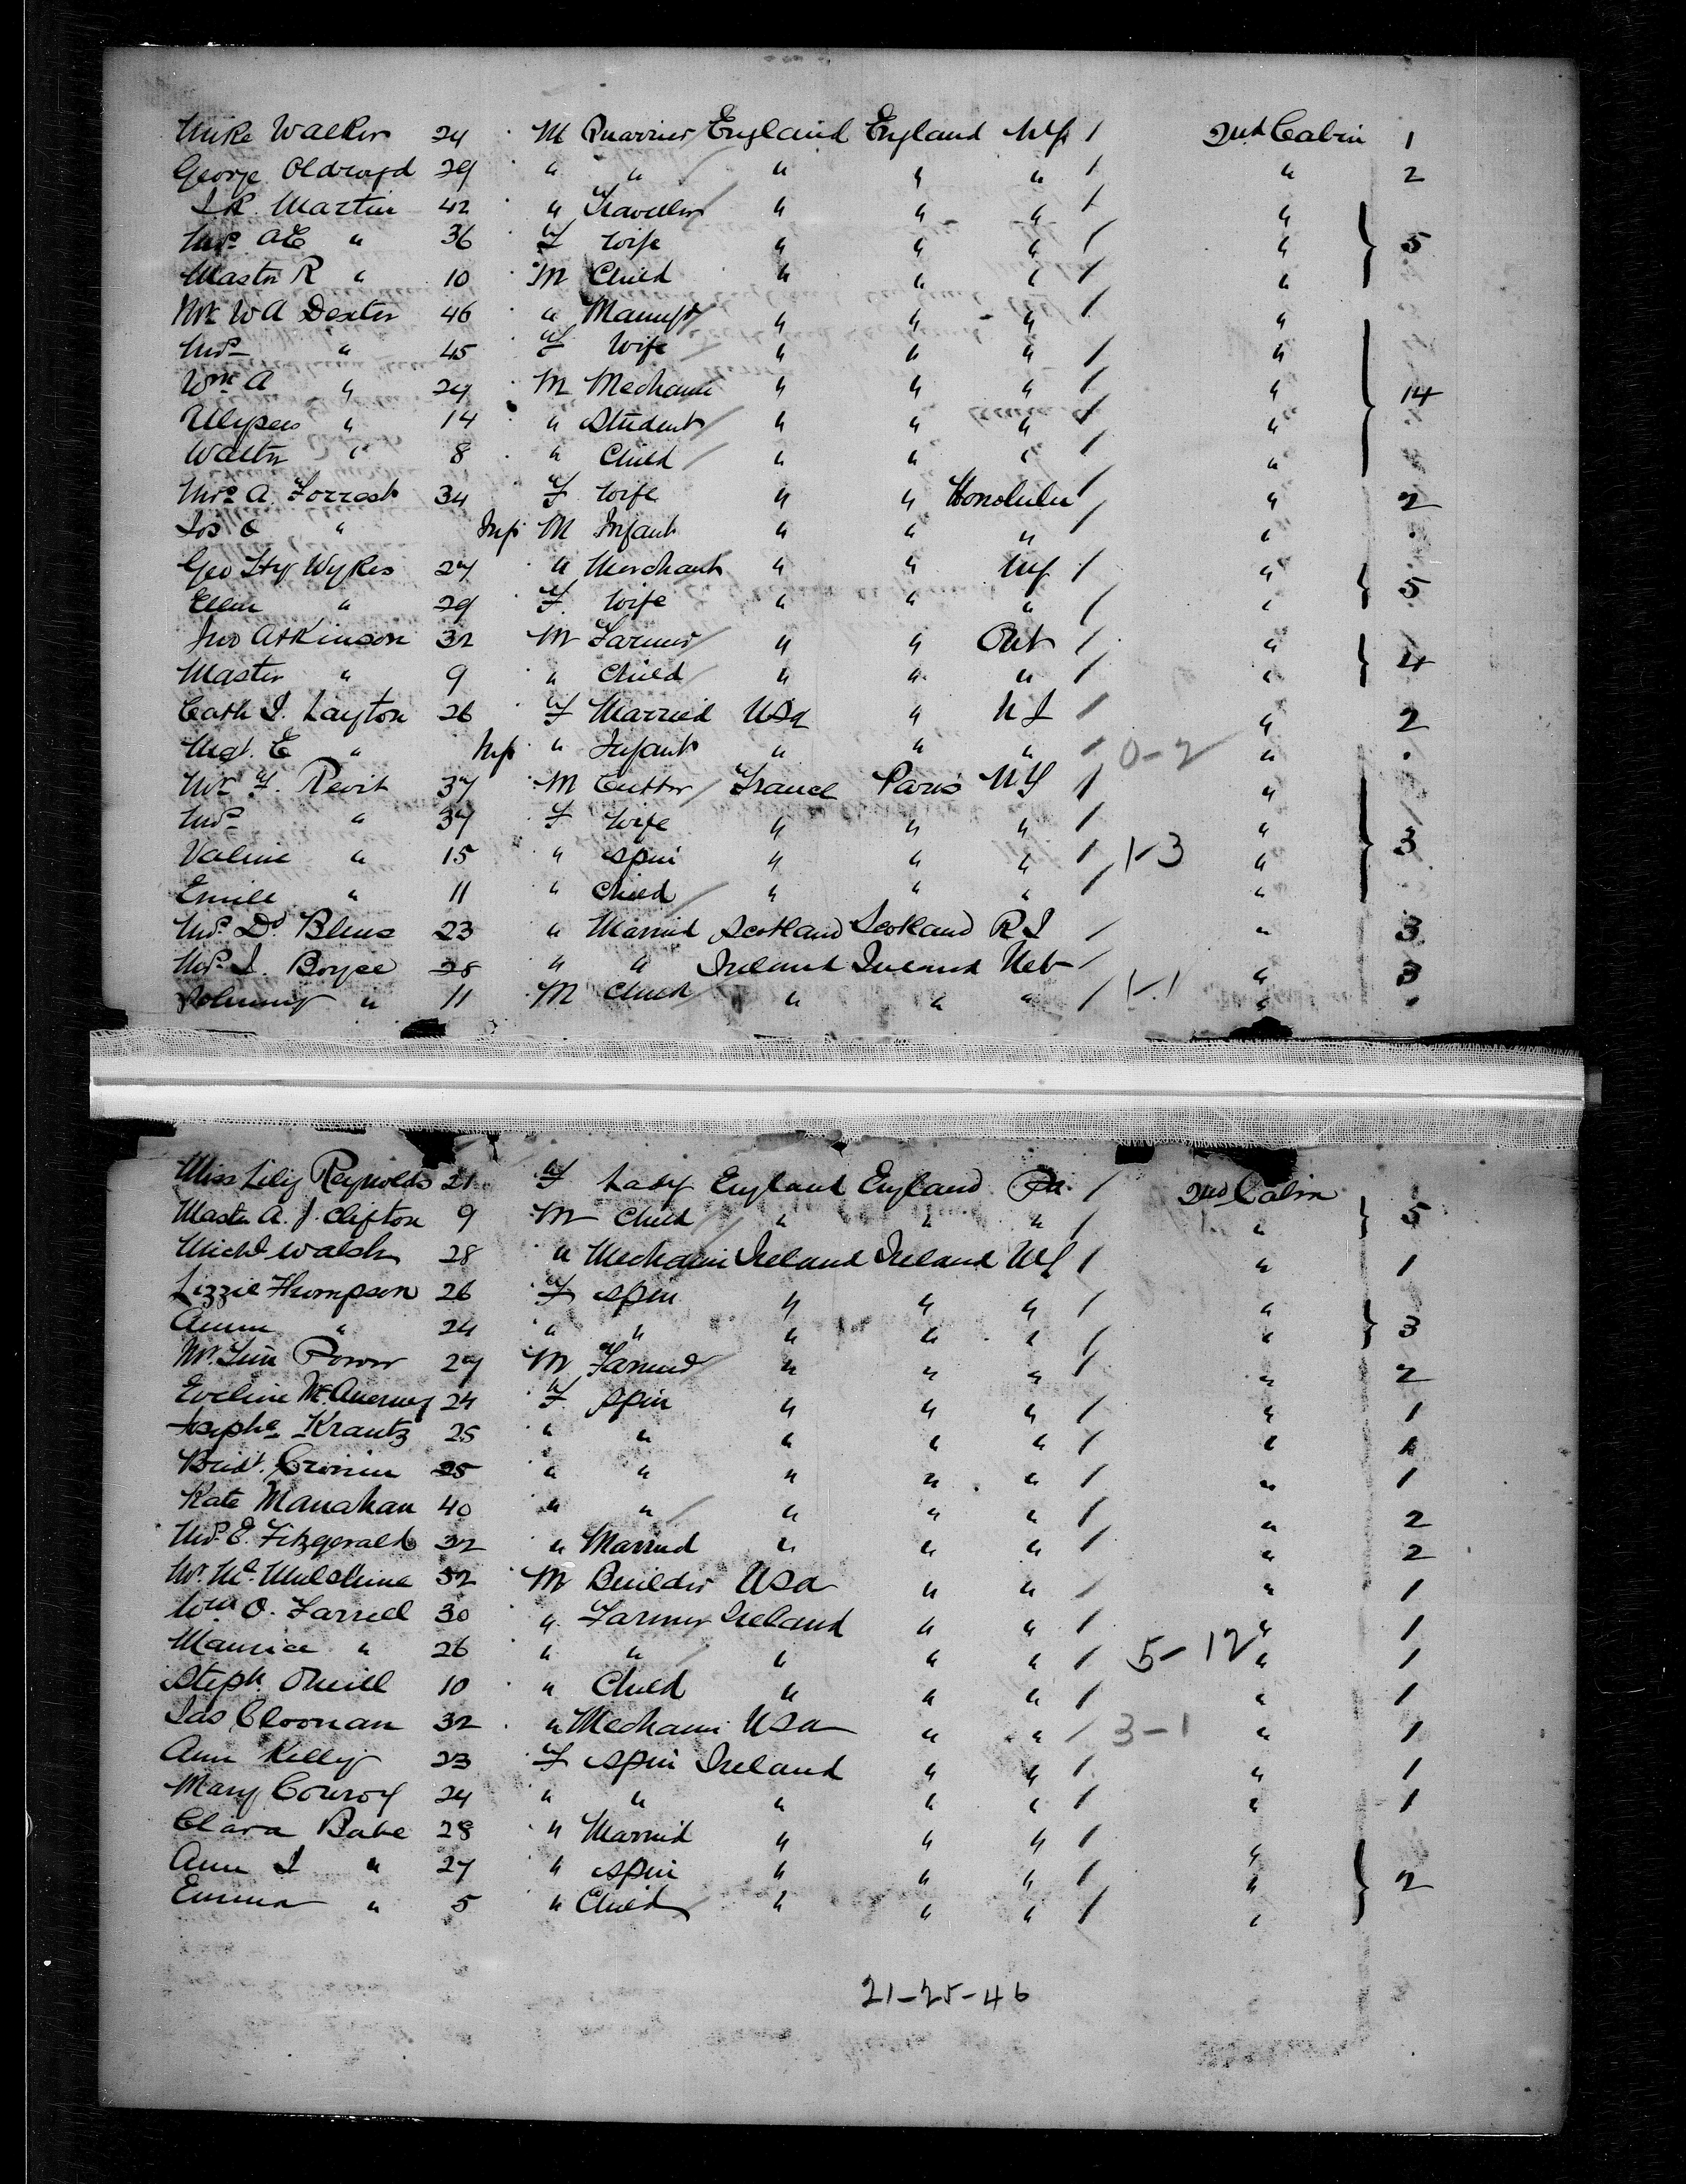 Mike Walker 24 M Quarrier England England NY / 2nd Cabin 1
George Oldroyd 29 " " " " " / " 2
J.R. Martin 42 " Traveller " " " / "
Mrs AE " 36 F Wife " " " / " 5
Master R " 10 M Child " " " / "
Mr W A Dexter 46 " Manufr " " " / "
Mrs " 45 F Wife " " " / "
Wm A " 24 M Mechanic " " " / " 14
Ulysses " 14 " Student " " " / "
Walter " 8 " Child " " " / "
Mrs A. Forrest 34 F Wife " " Honolulu / " 2
" Inf M Infant " " " / "
Geo Hy Wykes 27 " Merchant " " NY / " 5
Ellen " 29 F. Wife " " " / "
Jno Atkinson 32 M Farmer " " Ont / " 4
Master " 9 " Child " " " / "
Cath J. Layton 26 F Married USA " N J / " 2
Mgt. E " Inf " Infant " " " / 0-2 "
Mr F. Revit 37 M Cutter France Paris NY / "
Mrs " 37 F Wife " " " / " 3
Valine " 15 " Spin " " " / 1-3 "
Emile " 11 " Child " " " / "
Mrs D. Blens 23 " Married Scotland Scotland R I / " 3
Mrs J. Boyce 28 " " Ireland Ireland Neb / " 3
Johnny " 11 M Child " " " / 1-1 "
Miss Lily Reynolds 21 F Lady England England Pa. / 2nd Cabin
Master A. J. Clifton 9 M Child " " " / " 5
Michl Walsh 28 " Mechanic Ireland Ireland NY / " 1
Lizzie Thompson 26 F Spin " " " / "
Annie " 24 " " " " " / " 3
Mr. Tim Power 27 M Farmer " " " / " 2
Eveline McAnerney 24 F Spin " " " / " 1
Josephe Krantz 25 " " " " " / " 1
Bridt. Cronin 25 " " " " " / " 1
Kate Manahan 40 " " " " " / " 2
Mrs E. Fitzgerald 32 " Married " " " / " 2
Mr. Mc. 52 M Builder USA " " / " 1
Wm O. Farrell 30 " Farmer Ireland " " / " 1
Maurice " 26 " " " " " / 5-12 " 1
Steph. Oneill 10 " Child " " " / " 1
Jas Cloonan 32 " Mechanic USA " " / 3-1 " 1
Ann Kelly 23 F Spin Ireland " " / " 1
Mary Conroy 24 " " " " " / " 1
Clara Babe 28 " Married " " " / "
Ann J " 27 " Spin " " " / " 2
Emma " 5 " Child " " " / "
21-25-46